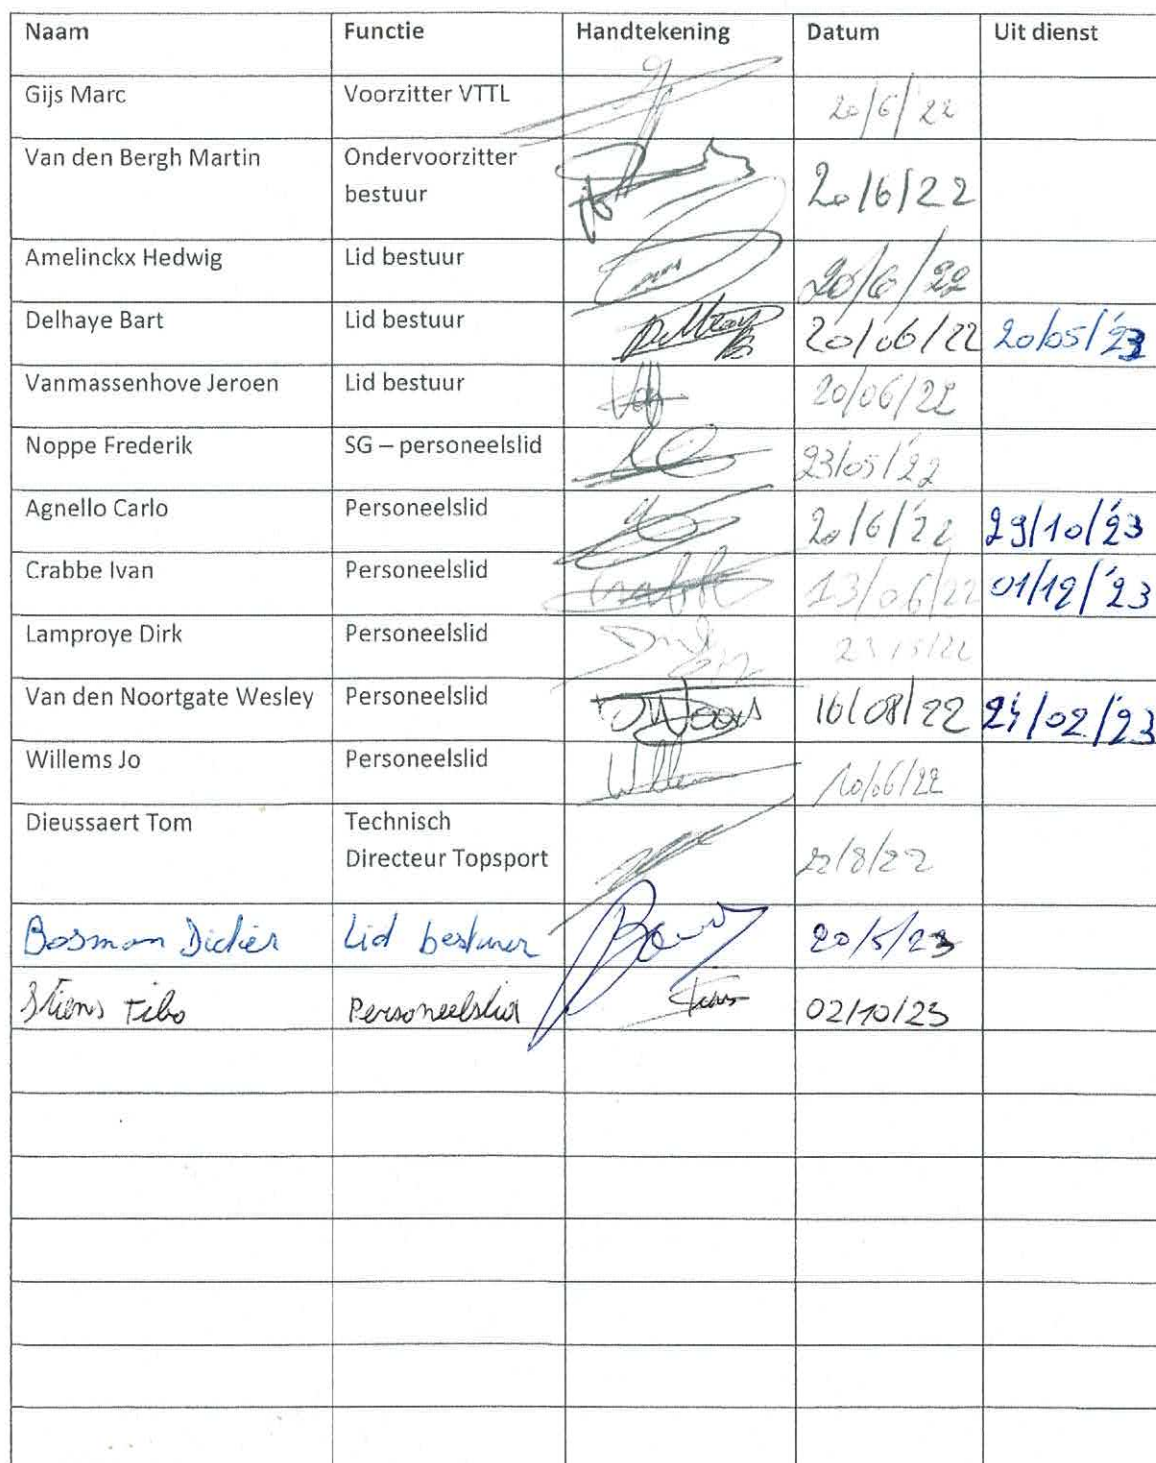 Naam Functie Handtekening Datum Uit dienst
Gijs Marc Voorzitter VTTL 20/6/22
Van den Bergh Martin Ondervoorzitter
bestuur 20/6/22
Amelinckx Hedwig Lid bestuur 20/6/22
Delhaye Bart Lid bestuur 20/06/22 20/05/'23
Vanmassenhove Jeroen Lid bestuur 20/06/22
Noppe Frederik SG – personeelslid 23/05/'22
Agnello Carlo Personeelslid 20/6/'22 29/10/'23
Crabbe Ivan Personeelslid 13/06/22 01/12/'23
Lamproye Dirk Personeelslid
Van den Noortgate Wesley Personeelslid 16/08/22 24/02/'23
Willems Jo Personeelslid 10/06/22
Dieussaert Tom Technisch
Directeur Topsport 22/8/22
Bosman Didier Lid bestuur 20/5/23
Stiens Tibo Personeelslid 02/10/23